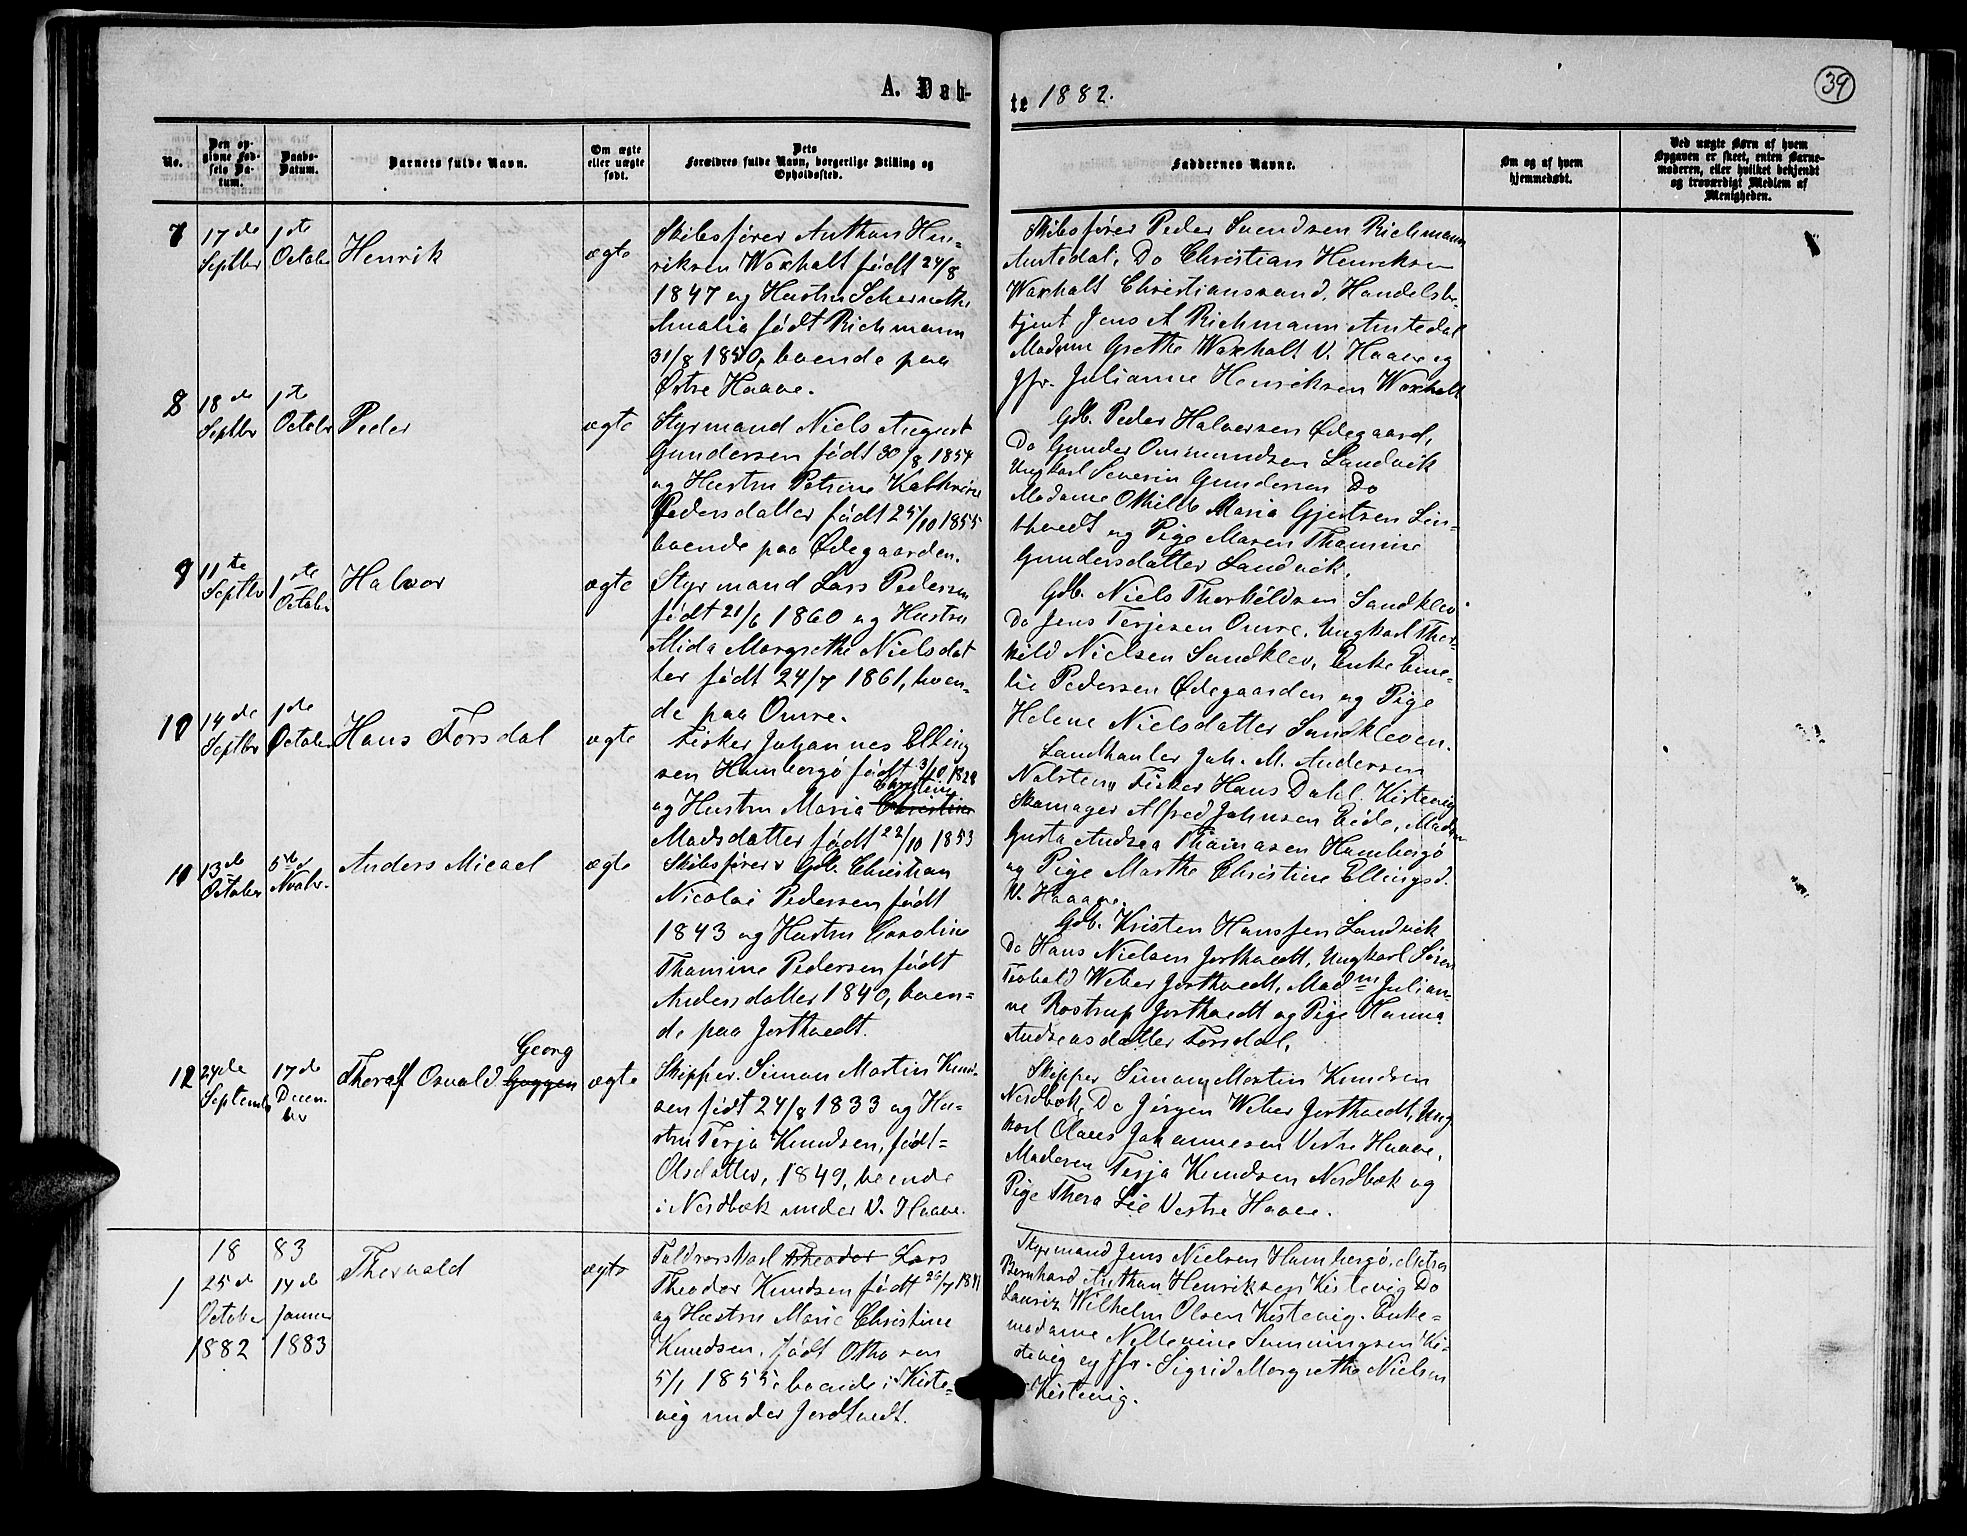 A. Døb-
te 1882.
39
No.
Den op-
givne Fød-
sels Da-
tum.
Daabs-
Datum.
Barnets fulde Navn.
Om ægte
eller uægte
født.
Dets
Forældres fulde Navn, borgerlige Stilling og
Opholdssted.
Faddernes Navne.
Om og af hvem
hjemmedøbt.
Ved uægte Børn af hvem
Opgaven er skeet, enten Barne-
moderen, eller hvilket bekjendt
og troværdigt Medlem af
Menigheden.
7
17de
Septbr
1ste
October
Henrik
ægte
Skibsfører Anthon Hen-
riksen Woxholt født 24/8
1847 og Hustru
Amalia født Richmann
31/8 1850, boende paa
Østre Haave.
Skibsfører Peder Svendsen Richmann
Amtedal, Do Christian Henriksen
Woxholt Christianssand, Handelsbe-
tjent Jens A Richmann Amtedal
Madam Grethe Woxholt V. Haave og
Jfr. Julianne Henriksen Woxholt
8
18de
Septbr
1ste
October
Peder
ægte
Styrmand Niels August
Gundersen født 30/8 1854
og Hustru Petrine Kathrine
Pedersdatter født 25/10 1855
boende paa Ødegaarden.
Gdb. Peder Halvorsen Ødegaard,
Do Gunder Ommundsen Landvik
Ungkarl Severin Gundersen Do
Madame Othilde Maria Gjertsen Lin-
tvedt og Pige Maren Thomine
Gundersdatter Landvik.
9
11te
Septbr
1ste
October
Halvor
ægte
Styrmand Lars Pedersen
født 21/6 1860 og Hustru
Mida Margrethe Nielsdat
ter født 24/7 1861, boen-
de paa Omre.
Gdb. Niels Thorkildsen Sandklev
Do Jens Terjesen Omre, Ungkarl Thor-
kild Nielsen Sandklev, Enke Eme-
lie Pedersen Ødegaarden og Pige
Helene Nielsdatter Sandkleven.
10
14de
Septbr
1ste
October
Hans Forsdal
ægte
Fisker Johannes Elling
sen Hambergö født 3/10 1828
Christine
og Hustru Maria Christine
Madsdatter født 22/10 1853
Landhandler Joh. M. Andersen
Nolsten, Fisker Hans Dahl Kistevig
Skomager Alfred Johnsen Eide, Madam
Gusta Andrea Thomasen Hambergö
og Pige Marthe Christine Ellingsd.
V. Haave.
11
13de
October
5te
Novbr.
Anders Micael
ægte
Skibsfører Gdb. Christian
Nicolai Pedersen født
1843 og Hustru Caroline
Thomine Pedersen født
Andersdatter 1840, boen=
de paa Jortveit.
Gdb. Kristen Hanssen Landvik
Do Hans Nielsen Jorthvedt, Ungkarl Søren
Teobald Weber Jorthvedt, Madm Julian-
ne Rostrup Jorthvedt og Pige Hanna
Andreasdatter Forsdal.
12
24de
September
17de
Decem-
ber
Georg
Thoralf Osvald
ægte
Skipper Simon Martin Knud-
sen født 24/8 1833 og Hu-
stru Terja Knudsen, født-
Olsdatter, 1849, boende
i Nordbæk under V. Haave.
Skipper Simon Martin Knudsen
Nordbæk, Do Jørgen Weber Jorthvedt, Ung
karl Olaus Johannesen Vestre Haave,
Moderen Terja Knudsen Nordbæk og
Pige Thora Lie Vestre Haave.
1883
1
25de
October
1882
14de
Januar
1883
Thorvald
ægte
Toldrorskarl Theodor Lars
Theodor Knudsen født
og Hustru Marie Christine
Knudsen, født Othosen
5/1 1855, boende i Kiste-
vig under Jordtvedt.
Styrmand Jens Nielsen Hambergö,
Bernhard Anthon Henriksen Kistevig Do
Lauriz Wilhelm Olsen Kistevig. Enke=
madame Nellevine Sunningsen Ki-
stevig og Jfr. Sigrid Margrethe Nielsen
Kistevig.